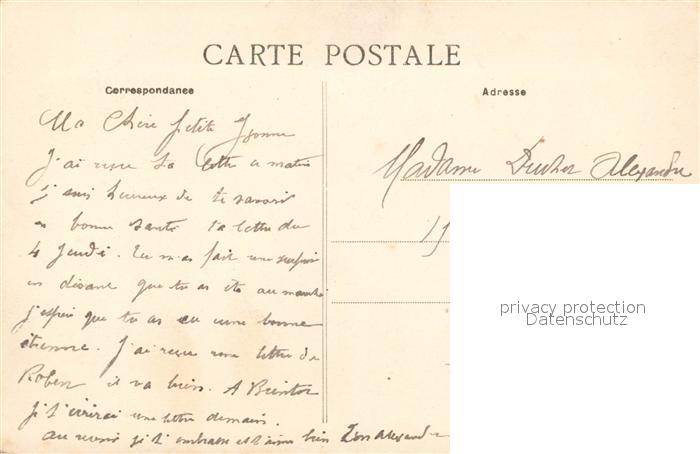 CARTE POSTALE
Correspondance
Adresse
Ma Chère petite Yvonne
J'ai reçu ta lettre ce matin
je suis heureux de te savoir
en bonne santé ta lettre du
4 Jeudi. Tu m'as fait une surprise
en disant que tu as été au marché
j'espère que tu as eu une bonne
étienne. J'ai reçu une lettre de
Robert il va bien. A Bientot
je t'écrirai une lettre demain.
au revoir je t'embrasse et t'aime bien Ton alexandre
Madame Alexandre
15
privacy protection
Datenschutz